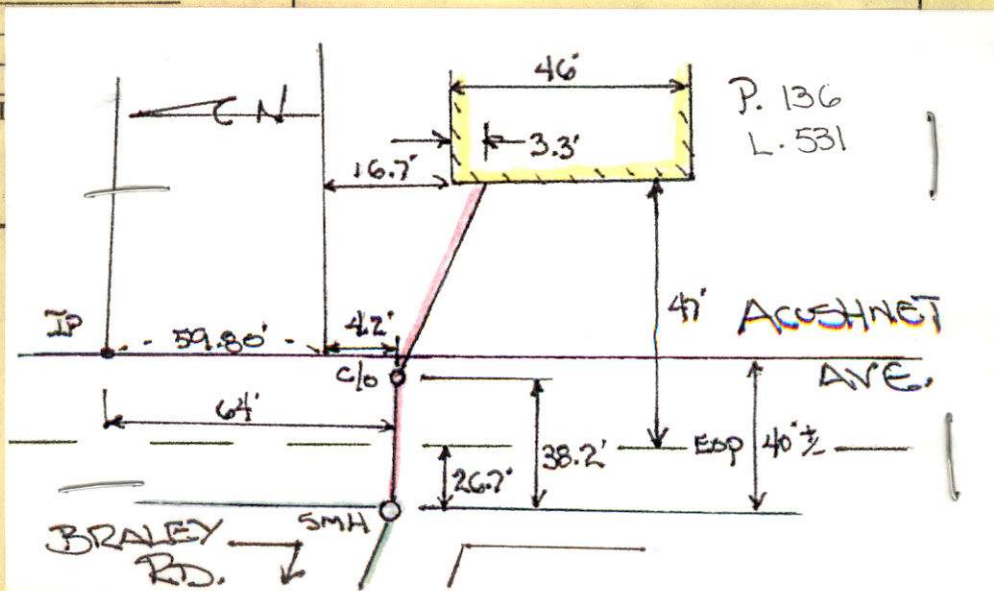 46'
P. 136
L. 531
N
3.3'
16.7'
IP
59.80'
4.2'
47'
ACUSHNET
AVE.
C/O
64'
38.2'
EOP
40'±
26.7'
SMH
BRALEY
RD.